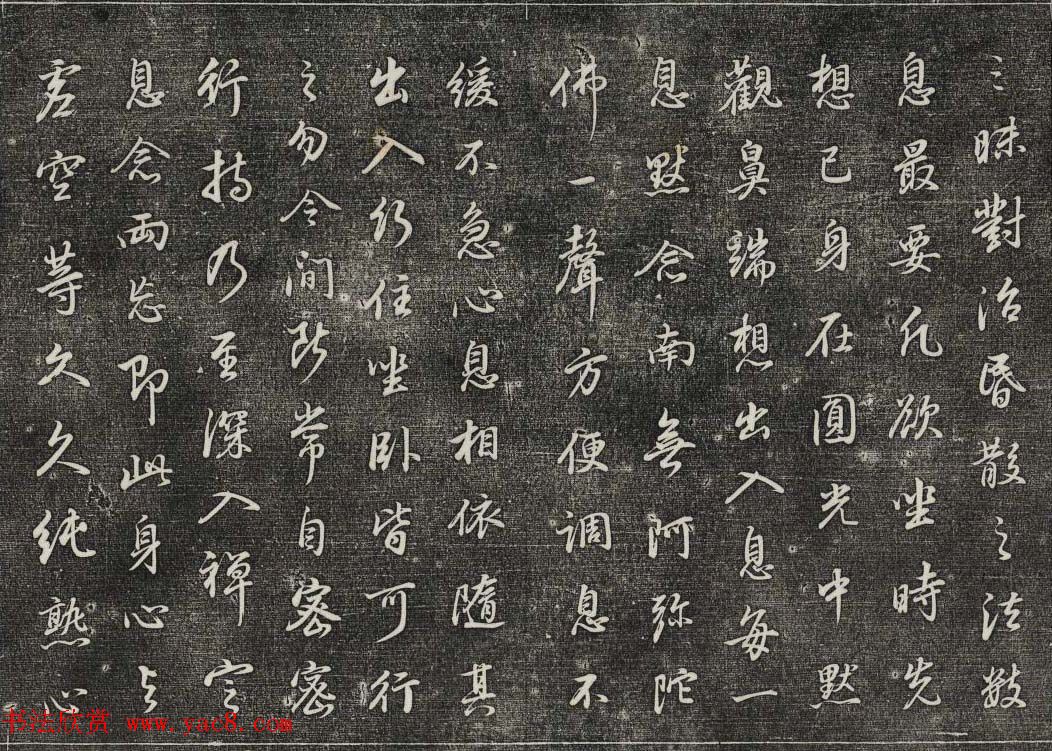 三昧對治昏散之法數
息最要凡欲坐時先
想已身在圓光中默
觀鼻端想出入息每一
息默念南無阿弥陀
佛一聲方便调息不
緩不急心息相依隨其
出入行住坐卧皆可行
之勿令间断常自密密
行持乃至深入禅定
息念兩忘即此身心与
虚空等久久纯熟心
书法欣赏 www.yac8.com